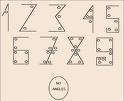 1 2 3 4 5
6 7 8 9
NO
ANGLES